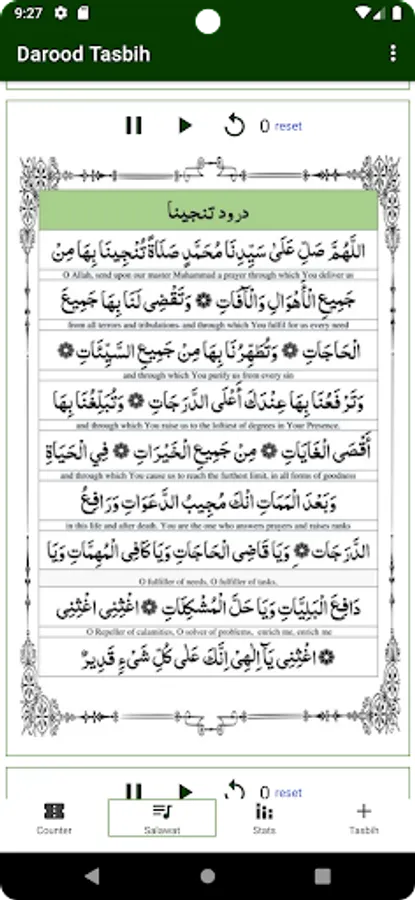 9:27
Darood Tasbih
0 reset
درود تنجینا
اللَّهُمَّ صَلِّ عَلَىٰ سَيِّدِنَا مُحَمَّدٍ صَلَاةً تُنْجِينَا بِهَا مِنْ
O Allah, send upon our master Muhammad a prayer through which You deliver us
جَمِيعِ الْأَهْوَالِ وَالْآفَاتِ ۞ وَتَقْضِى لَنَا بِهَا جَمِيعَ
from all terrors and tribulations. and through which You fulfil for us every need
الْحَاجَاتِ ۞ وَتُطَهِّرُنَا بِهَا مِنْ جَمِيعِ السَّيِّئَاتِ ۞
and through which You purify us from every sin
وَتَرْفَعُنَا بِهَا عِنْدَكَ أَعْلَى الدَّرَجَاتِ ۞ وَتُبَلِّغُنَا بِهَا
and through which You raise us to the loftiest of degrees in Your Presence.
أَقْصَى الْغَايَاتِ ۞ مِنْ جَمِيعِ الْخَيْرَاتِ ۞ فِي الْحَيَاةِ
and through which You cause us to reach the furthest limit, in all forms of goodness
وَبَعْدَ الْمَمَاتِ انْكَ مُجِيبُ الدَّعَوَاتِ وَرَافِعُ
in this life and after death. You are the one who answers prayers and raises ranks
الدَّرَجَات ۞ وَيَا قَاضِى الْحَاجَاتِ وَيَا كَافِى الْمُهِمَّاتِ وَيَا
O fulfiller of needs, O fulfiller of tasks,
دَافِعَ الْبَلِيَّاتِ وَيَا حَلَّ الْمُشْكِلَاتِ ۞ اغْثِنِى اغْثِنِى
O Repeller of calamities, O solver of problems, enrich me, enrich me
۞ اغْثِنِى يَآ اِلٰهِىْ اِنَّكَ عَلٰى كُلِّ شَىْءٍ قَدِيرٌ
0 reset
Counter
Salawat
Stats
Tasbih